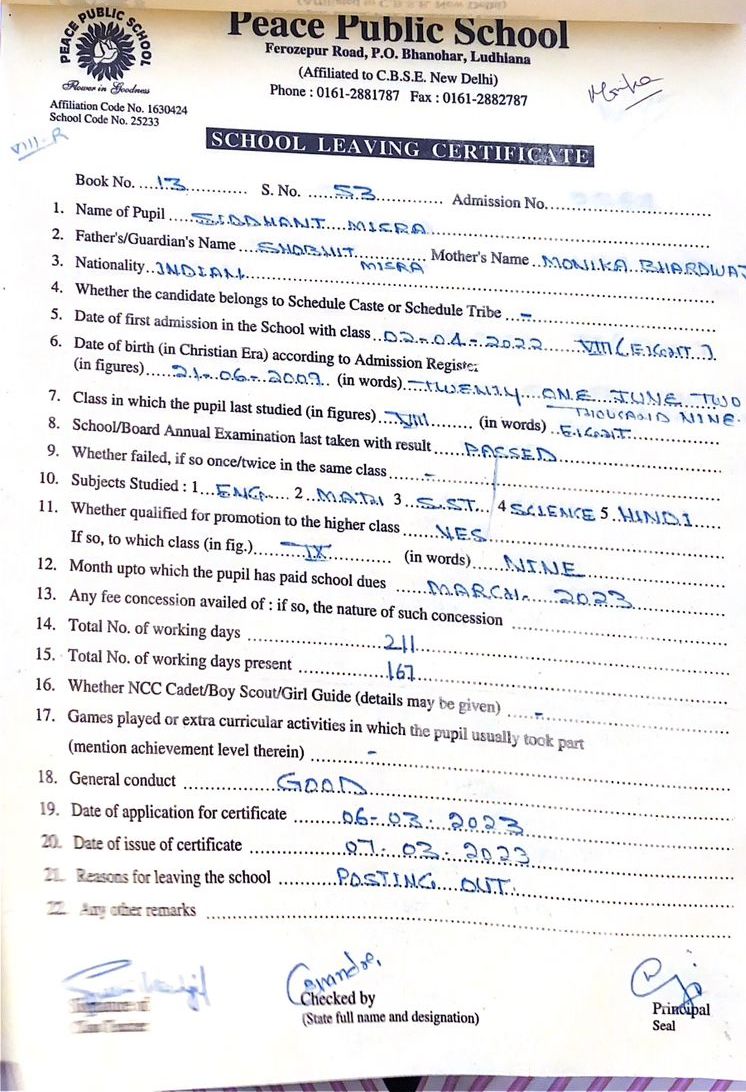 PEACE PUBLIC SCHOOL
Power in Goodness
Peace Public School
Ferozepur Road, P.O. Bhanohar, Ludhiana
(Affiliated to C.B.S.E. New Delhi)
Phone : 0161-2881787 Fax : 0161-2882787
Monika
Affiliation Code No. 1630424
School Code No. 25233
VIII-R
SCHOOL LEAVING CERTIFICATE
Book No. 13 S. No. 53 Admission No.
1. Name of Pupil SIDDHANT MISRA
2. Father's/Guardian's Name SHOBHIT MISRA Mother's Name MONIKA BHARDWAJ
3. Nationality INDIAN
4. Whether the candidate belongs to Schedule Caste or Schedule Tribe -
5. Date of first admission in the School with class 02-04-2022 VIII (EIGHT)
6. Date of birth (in Christian Era) according to Admission Register
(in figures) 21-06-2009 (in words) TWENTY ONE JUNE TWO
THOUSAND NINE.
7. Class in which the pupil last studied (in figures) VIII (in words) EIGHT
8. School/Board Annual Examination last taken with result PASSED
9. Whether failed, if so once/twice in the same class -
10. Subjects Studied : 1 ENG. 2 MATH 3 S.ST. 4 SCIENCE 5 HINDI
11. Whether qualified for promotion to the higher class YES
If so, to which class (in fig.) IX (in words) NINE
12. Month upto which the pupil has paid school dues MARCH- 2023
13. Any fee concession availed of : if so, the nature of such concession
14. Total No. of working days 211
15. Total No. of working days present 167
16. Whether NCC Cadet/Boy Scout/Girl Guide (details may be given) -
17. Games played or extra curricular activities in which the pupil usually took part
(mention achievement level therein) -
18. General conduct GOOD
19. Date of application for certificate 06-03.2023
20. Date of issue of certificate 07.03.2023
21. Reasons for leaving the school POSTING OUT.
22. Any other remarks
Signature of
Class Teacher
Checked by
(State full name and designation)
Principal
Seal